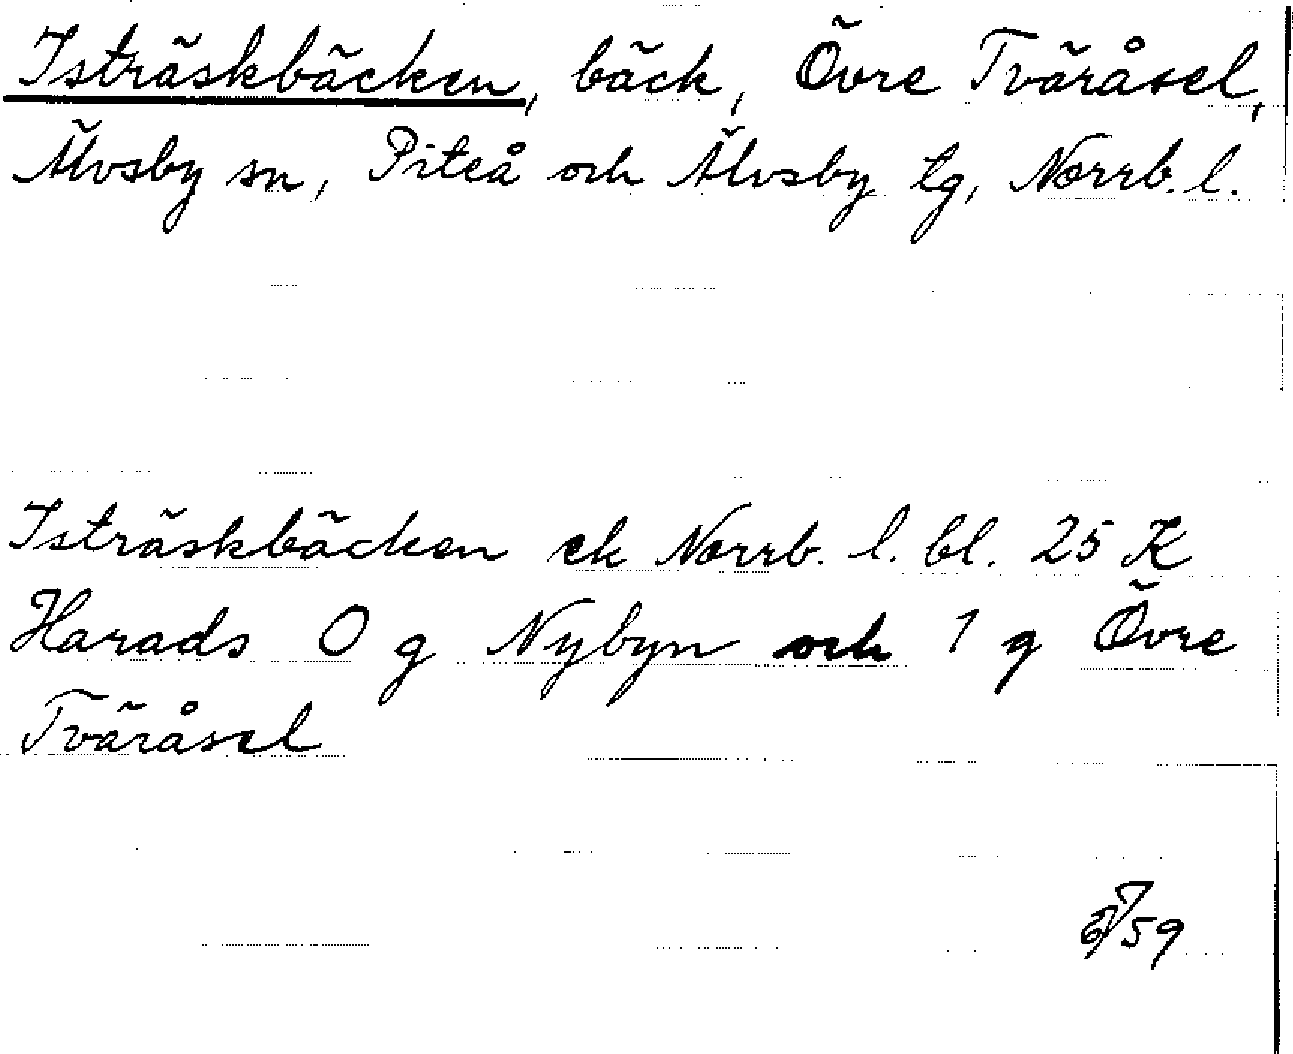 Isträskbäcken, bäck, Övre Tväråsel,
Älvsby sn, Piteå och Älvsby tg, Norrb. l.
Isträskbäcken ek Norrb. l. bl. 25 K
Harads 0 g Nybyn och 1 g Övre
Tväråsel
59